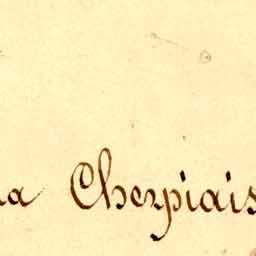 na Cherpiais